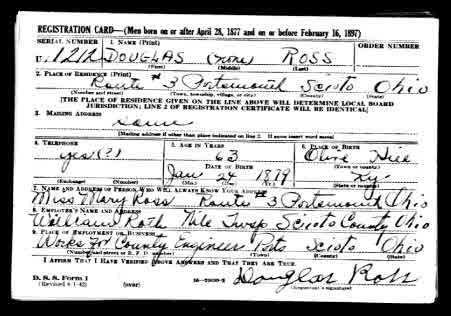 REGISTRATION CARD—(Men born on or after April 28, 1877 and on or before February 16, 1897)
SERIAL NUMBER 1. NAME (Print) ORDER NUMBER
U. 1212 DOUGLAS (none) ROSS
(First) (Middle) (Last)
2. PLACE OF RESIDENCE (Print)
Route # 3 Portsmouth Scioto Ohio
(Number and street) (Town, township, village, or city) (County) (State)
[THE PLACE OF RESIDENCE GIVEN ON THE LINE ABOVE WILL DETERMINE LOCAL BOARD
JURISDICTION; LINE 2 OF REGISTRATION CERTIFICATE WILL BE IDENTICAL]
3. MAILING ADDRESS
same
[Mailing address if other than place indicated on line 2. If same insert word same]
4. TELEPHONE 5. AGE IN YEARS 6. PLACE OF BIRTH
yes (?) 63 Olive Hill
DATE OF BIRTH (Town or county)
Jan 24 1879 Ky.
(Exchange) (Number) (Mo.) (Day) (Yr.) (State or country)
7. NAME AND ADDRESS OF PERSON WHO WILL ALWAYS KNOW YOUR ADDRESS
Miss Mary Ross Route # 3 Portsmouth Ohio
8. EMPLOYER'S NAME AND ADDRESS
William Roth Nile Twsp Scioto County Ohio
9. PLACE OF EMPLOYMENT OR BUSINESS
Works for County Engineer Pts Scioto Ohio
(Number and street or R. F. D. number) (Town) (County) (State)
I AFFIRM THAT I HAVE VERIFIED ABOVE ANSWERS AND THAT THEY ARE TRUE.
D. S. S. Form 1 Douglas Ross
(Revised 4-1-42) (over) (Registrant's signature)